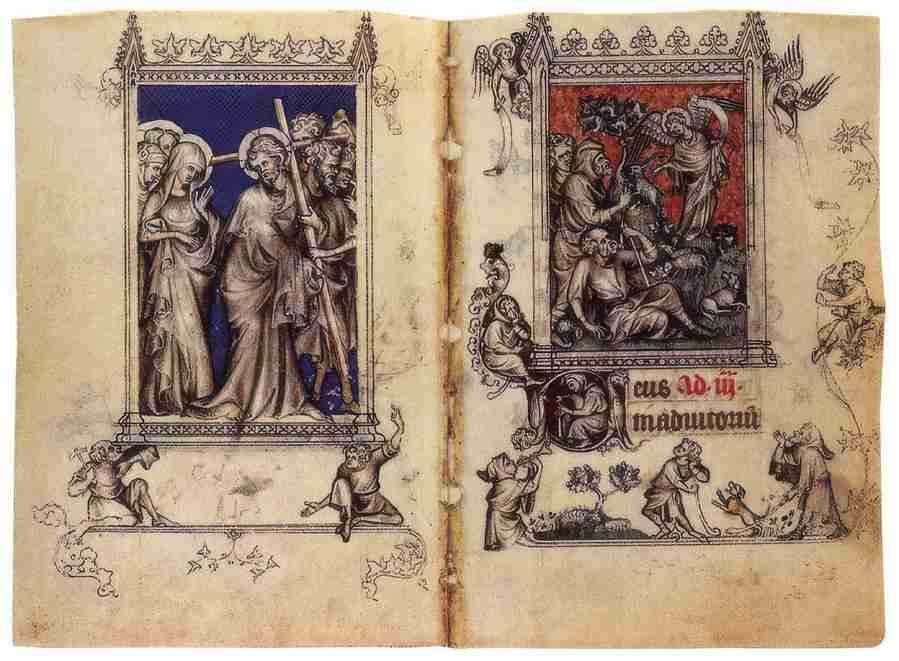 Deus Ad. iij.
in adiutoriū